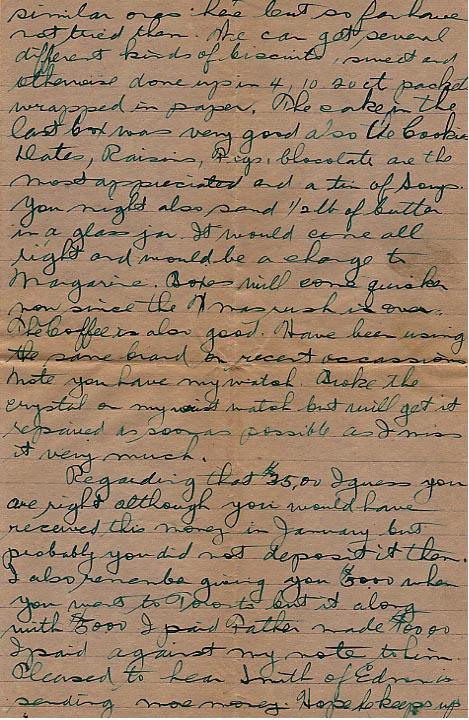 similar ones here but so far have
not tried them. We can get several
different kinds of biscuits, sweet and
otherwise done up in 4, 10, 20 ct packets
wrapped in paper. The cake in the
last box was very good also the Cookies
Dates, Raisins, Figs, Chocolate are the
most appreciated and a tin of
You might also send 1/2 lb of butter
in a glass jar. It would come all
right and would be a change to
Margarine. Boxes will come quicker
now since the Xmas rush is over.
The Coffee is also good. Have been using
the same brand on recent occassions
Note you have my watch. Broke the
crystal on my wrist watch but will get it
repaired as soon as possible as I miss
it very much.
Regarding that I guess you
are right although you would have
received this money in January but
probably you did not deposit it then.
I also remember giving you when
you went to Toronto but it along
with I paid Father made
I paid against my note to him.
Pleased to hear Smith of is
sending more money. Hope he keeps up